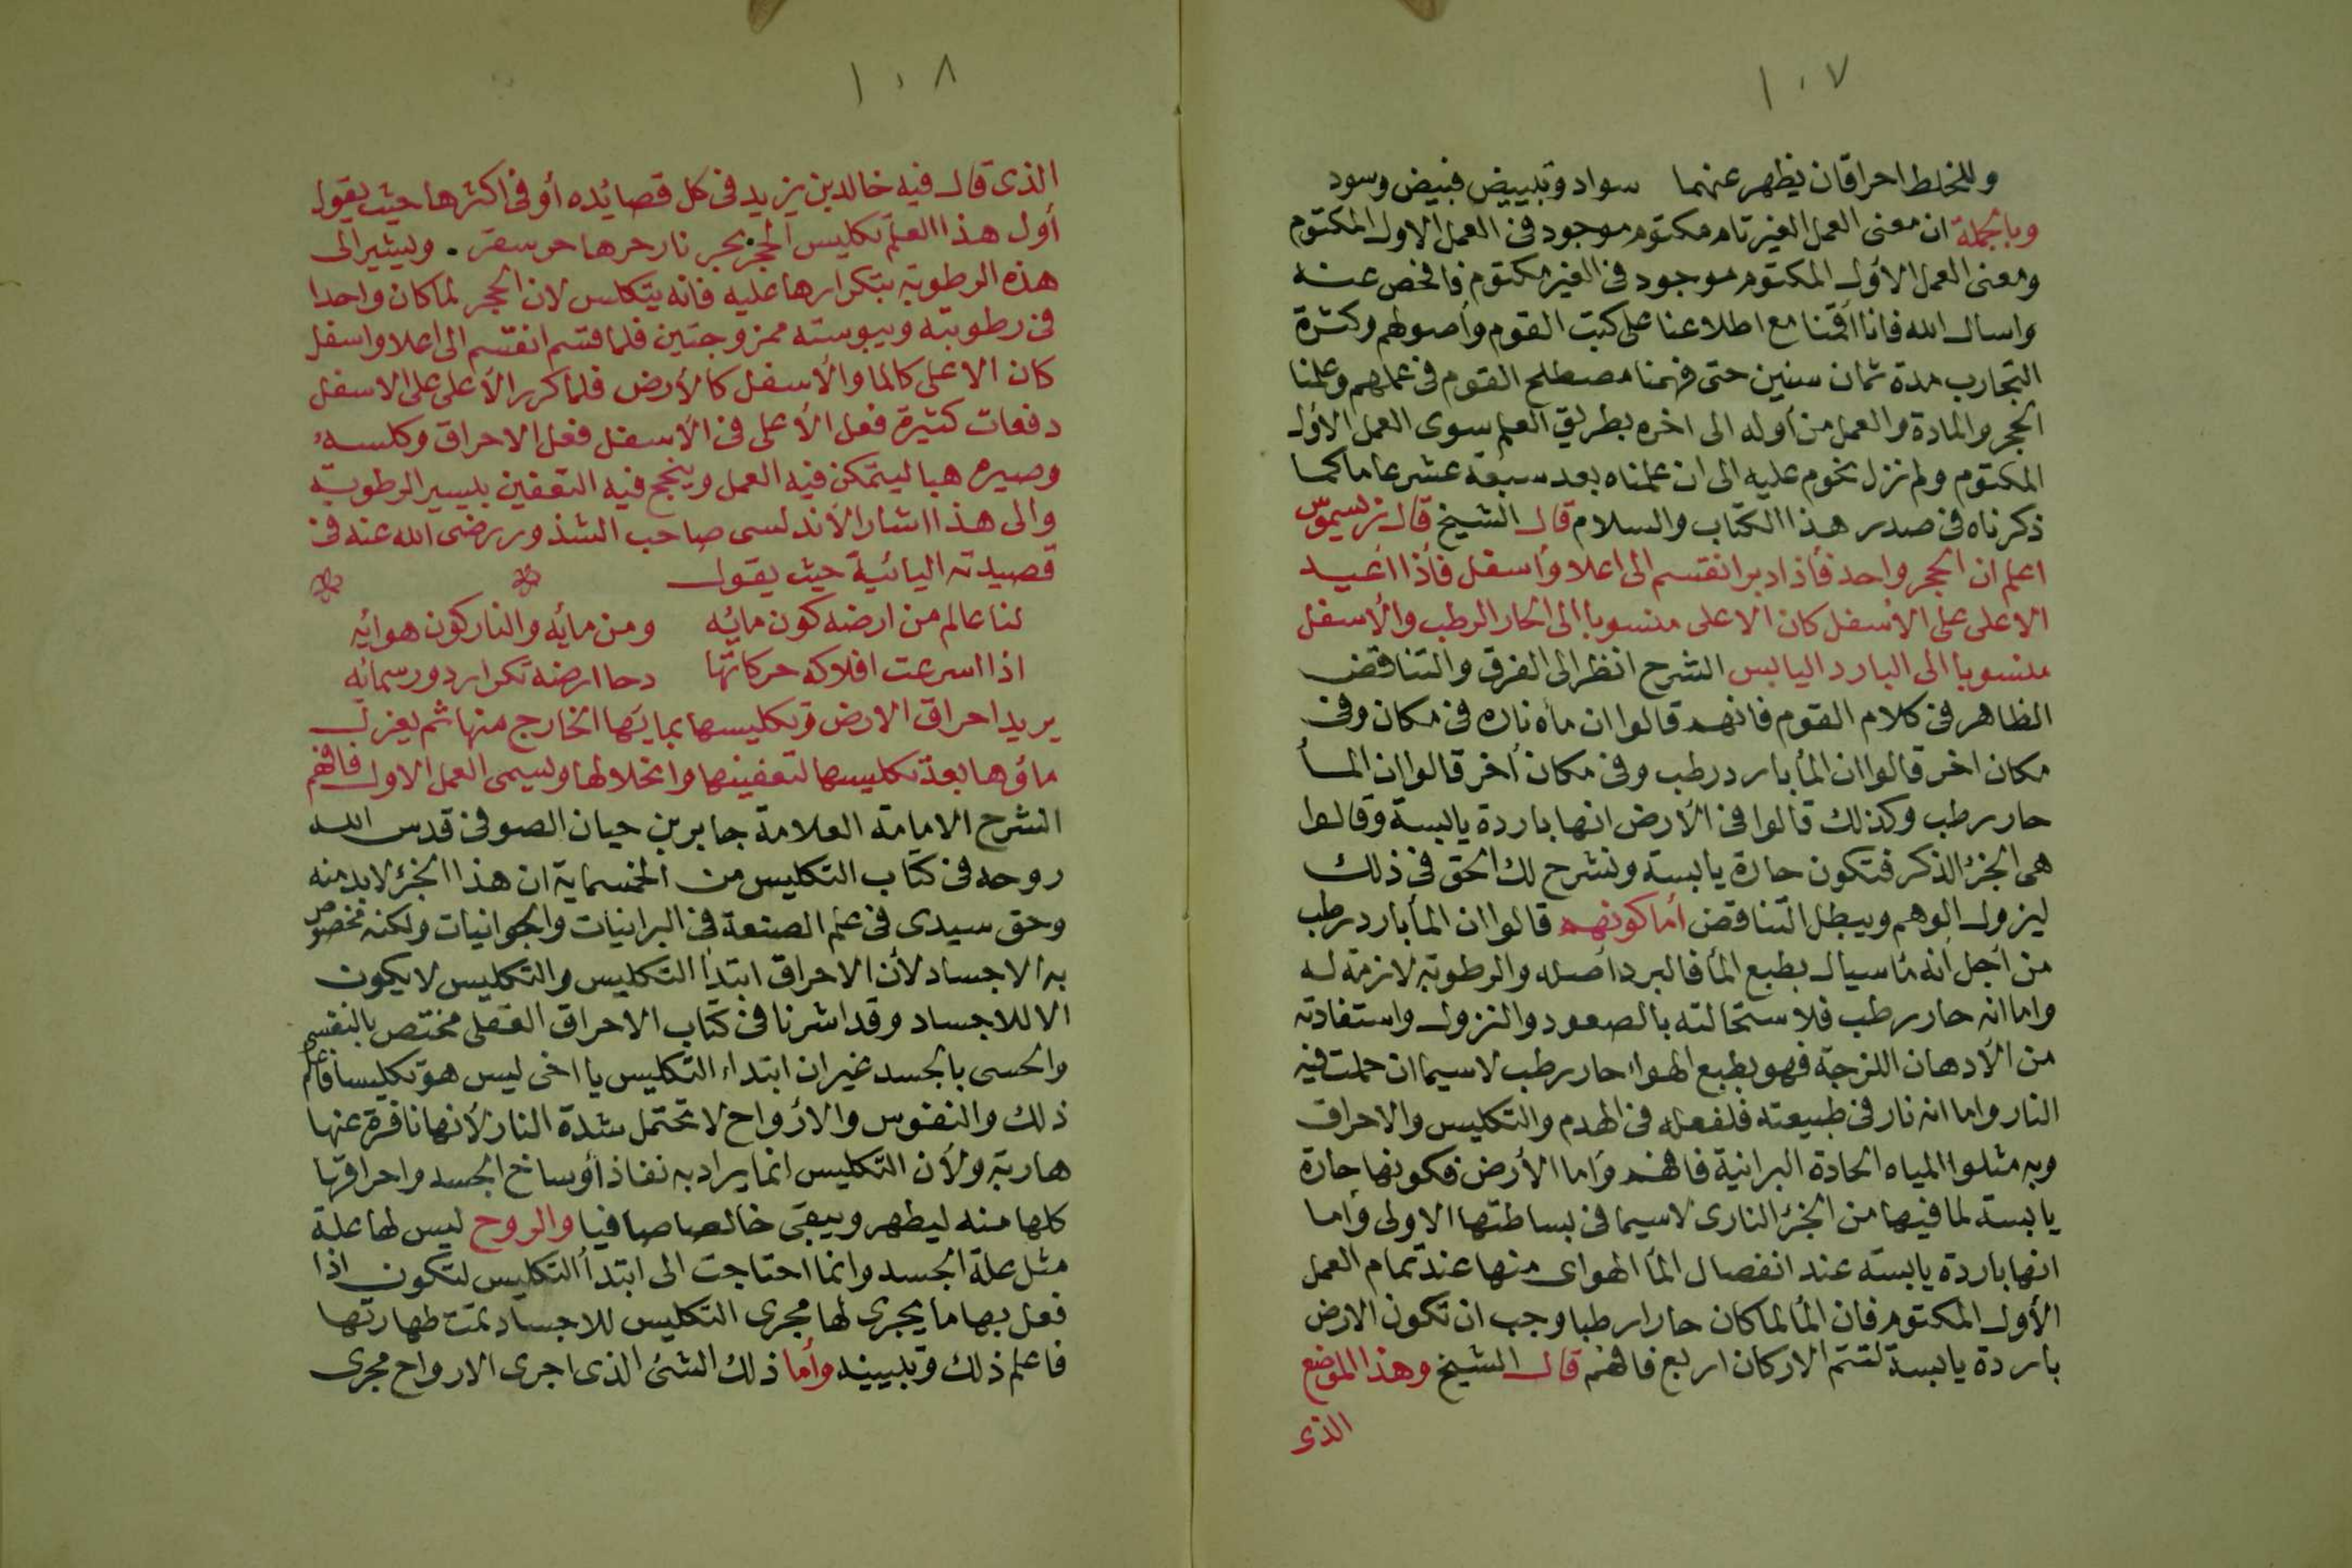 ١٠٧
وللخلط احراقان يظهر عنهما سواد وتبييض فبيض وسود
وبالجملة ان معنى العمل الغير تام مكتوم موجود فى العمل الاول المكتوم
ومعنى العمل الاول المكتوم موجود فى الغير مكتوم فافحص عنه
واسال الله فانا اقمنا مع اطلاعنا على كتب القوم وأصولهم وكثرة
التجارب مدة ثمان سنين حتى فهمنا مصطلح القوم فى عملهم وعلمنا
الحجر والمادة والعمل من أوله الى اخره بطريق العلم سوى العمل الأول
المكتوم ولم نزل نحوم عليه الى ان علمناه بعد سبعة عشر عاما كما
ذكرناه فى صدر هذا الكتاب والسلام قال الشيخ قال
اعلم ان الحجر واحد فأذا دبر انقسم الى اعلا وأسفل فأذا اعيد
الاعلى على الأسفل كان الاعلى منسوبا الى الحار الرطب والأسفل
منسوبا الى البارد اليابس الشرح انظر الى الفرق والتناقض
الظاهر فى كلام القوم فانهم قالوا ان ماه ناره فى مكان وفى
مكان اخر قالوا ان المأ بارد رطب وفى مكان أخر قالوا ان المأ
حار رطب وكذلك قالوا فى الأرض انها باردة يابسة وقالوا
هى الجزؤ الذكر فتكون حارة يابسة ونشرح لك الحق فى ذلك
ليزول الوهم ويبطل التناقض أما كونهم قالوا ان المأ بارد رطب
من أجل أنه مأ سيال بطبع المأ فالبرد أصله والرطوبة لازمة له
واما انه حار رطب فلاستحالته بالصعود والنزول واستفادته
من الأدهان اللزجة فهو بطبع الهواء حار رطب لاسيما ان حملت فيه
النار واما انه نار فى طبيعته فلفعله فى الهدم والتكليس والاحراق
وبه مثلوا المياه الحادة البرانية فافهم وأما الأرض فكونها حارة
يابسة لما فيها من الجزؤ النارى لاسيما فى بساطتها الاولى وأما
انها باردة يابسة عند انفصال المأ الهواى منها عند تمام العمل
الأول المكتوم فان المأ لما كان حارا رطبا وجب ان تكون الارض
باردة يابسة لتتم الاركان اربع فافهم قال الشيخ وهذا الموضع
الذى
١٠٨
الذى قال فيه خالد بن يزيد فى كل قصائده أو فى اكثرها حيث يقول
أول هذا العلم تكليس الحجر بحر نار حرها حر سقر . ويشير الى
هذه الرطوبة بتكرارها عليه فانه يتكلس لان الحجر لما كان واحدا
فى رطوبته ويبوسته ممزوجتين فلما قسم انقسم الى اعلا واسفل
كان الاعلى كالما والأسفل كالأرض فلما كرر الأعلى على الاسفل
دفعات كثيرة فعل الأعلى فى الأسفل فعل الاحراق وكلسه
وصيره هبا ليتمكن فيه العمل وينجح فيه التعفين بيسير الرطوبة
والى هذا اشار الأندلسى صاحب الشذور رضى الله عنه فى
قصيدته اليائية حيث يقول
لنا عالم من ارضه كون مائه ومن مائه والنار كون هوائه
اذا اسرعت افلاكه حركاتها دحا ارضه تكرار دور سمائه
يريد احراق الارض وتكليسها بمائها الخارج منها ثم يعزل
ماؤها بعد تكليسها لتعفينها وانحلالها ويسمى العمل الاول فافهم
الشرح الامامة العلامة جابر بن حيان الصوفى قدس الله
روحه فى كتاب التكليس من الخمسماية ان هذا الجزؤ لابد منه
وحق سيدى فى علم الصنعة فى البرانيات والجوانيات ولكنه مخصوص
به الاجساد لأن الاحراق ابتدأ التكليس والتكليس لا يكون
الا للاجساد وقد اشرنا فى كتاب الاحراق العقلى مختص بالنفس
والحسى بالجسد غير ان ابتداء التكليس يا اخى ليس هو تكليسا فاعلم
ذلك والنفوس والارواح لا تحتمل شدة النار لأنها نافرة عنها
هاربة ولأن التكليس انما يراد به نفاذ أوساخ الجسد واحراقها
كلها منه ليطهر ويبقى خالصا صافيا والروح ليس لها علة
مثل علة الجسد وانما احتاجت الى ابتدأ التكليس لتكون اذا
فعل بها ما يجرى لها مجرى التكليس للاجساد تمت طهارتها
فاعلم ذلك وتبيينه وأما ذلك الشئ الذى اجرى الارواح مجرى